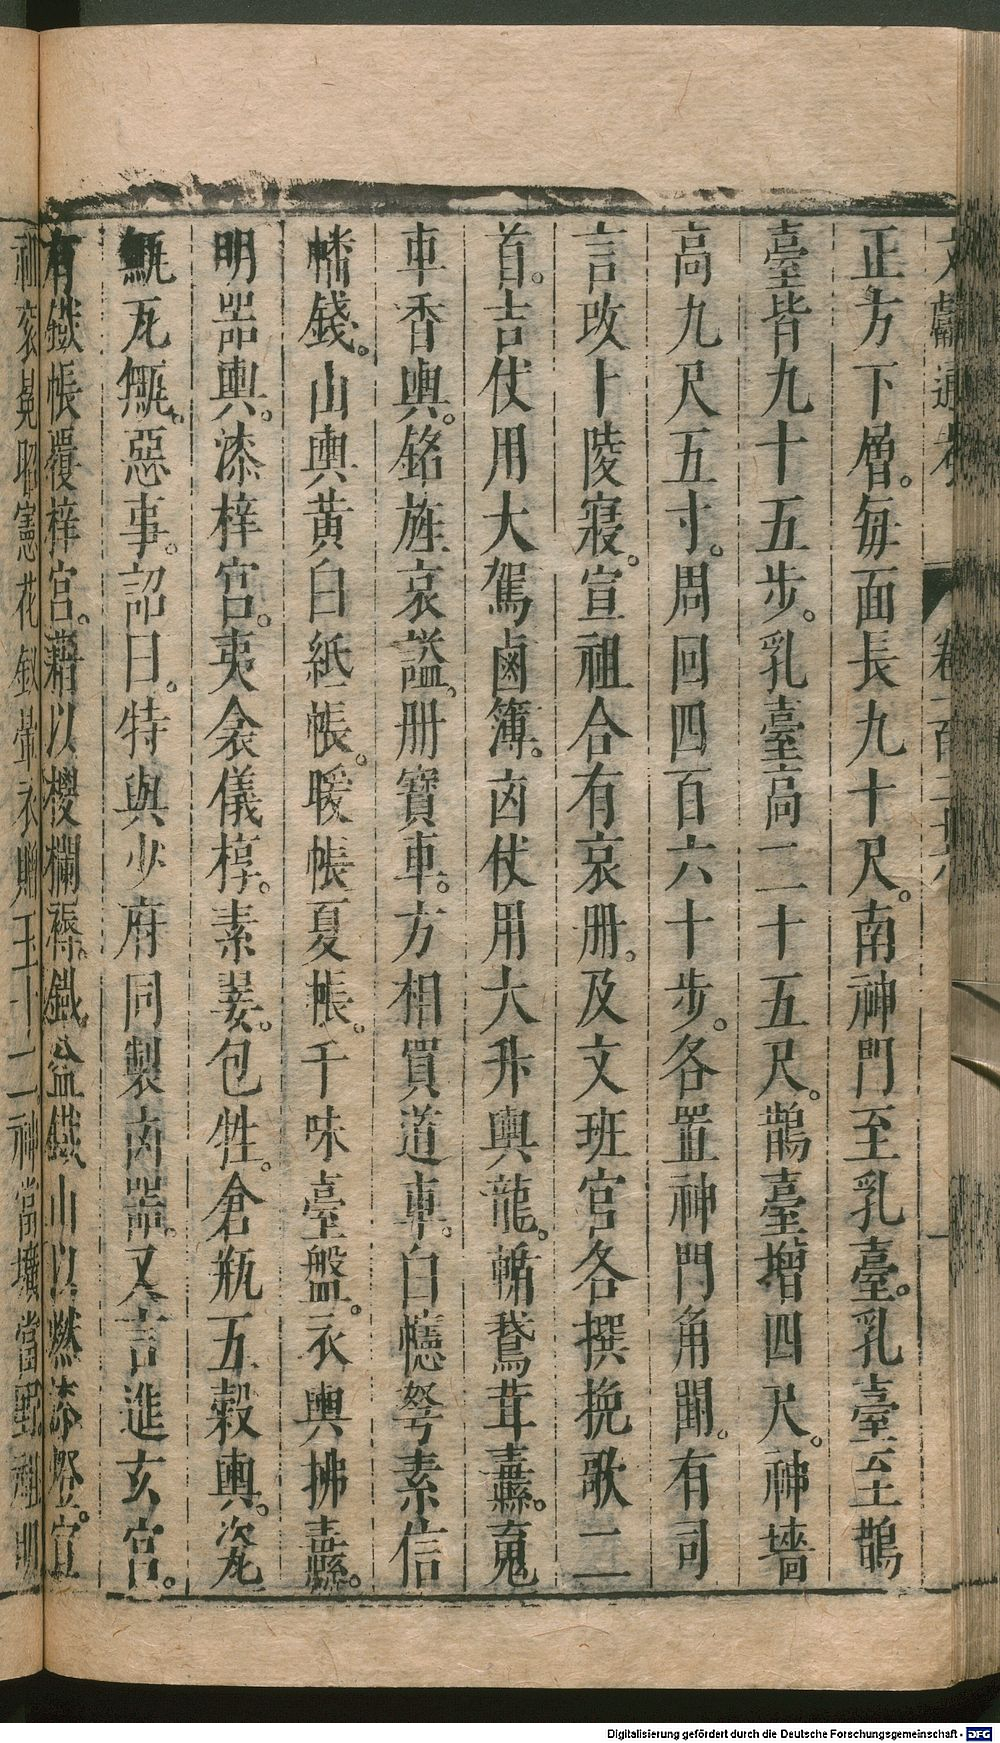 文獻通考 卷一百二十六
正方下層。每面長九十尺。南神門至乳臺。乳臺至鵲
臺皆九十五步。乳臺高二十五尺。鵲臺增四尺。神墻
高九尺五寸。周回四百六十步。各置神門角闕。有司
言改卜陵寢。宣祖合有哀册。及文班官各撰挽歌二
首。吉仗用大駕鹵簿。凶仗用大升輿龍。輴鵞茸纛。䰟
車香輿。銘旌哀謚。册寶車。方相買道車。白幰弩素信
幡錢。山輿黄白紙帳。暖帳夏帳。千味臺盤。衣輿拂纛。
明器輿。漆梓宫。夷衾儀椁。素翣。包牲。倉瓶五穀輿。瓷
甒瓦甒。惡事。詔曰。特與少府同製凶器。又言進玄宫。
有鐵帳覆梓宫。藉以椶欄褥。鐵盆鐵山以燃漆燈。宣
祖衮冕昭憲花釵翬衣贈玉十二神當壙當野祖明
Digitalisierung gefördert durch die Deutsche Forschungsgemeinschaft - DFG